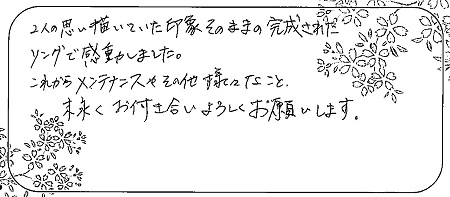 2人の思い描いていた印象そのままの完成された
リングで感動しました。
これからメンテナンスやその他様々なこと、
末永くお付き合いよろしくお願いします。